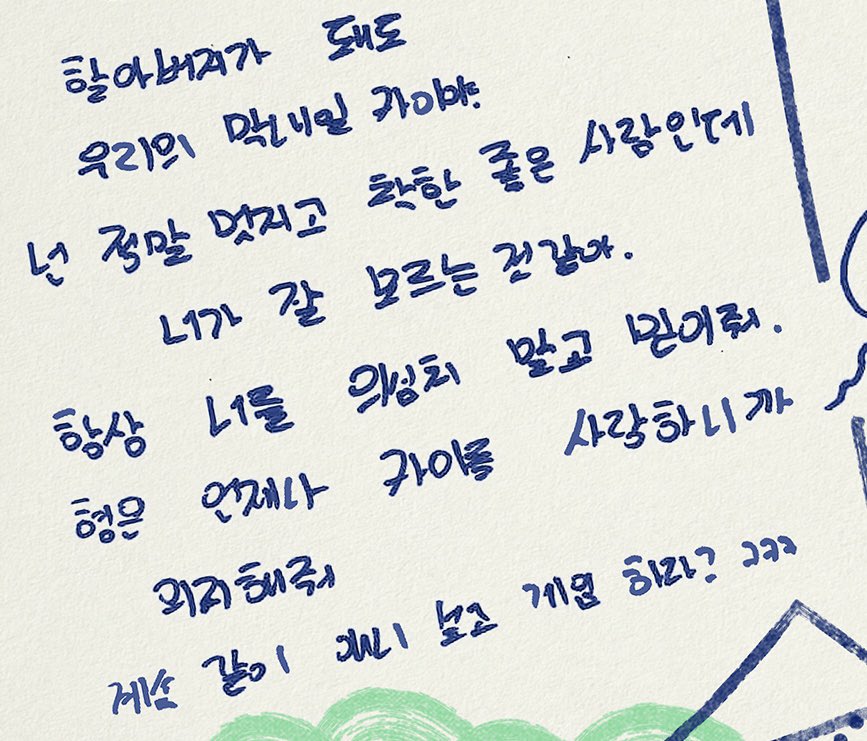 할아버지가 돼도
우리의 막내일 카이야.
넌 정말 멋지고 착한 좋은 사람인데
너가 잘 모르는 것 같아.
항상 너를 의심치 말고 믿어줘.
형은 언제나 카이를 사랑하니까
의지해줘
계속 같이 애니 보고 게임 하자? ㅋㅋㅋ